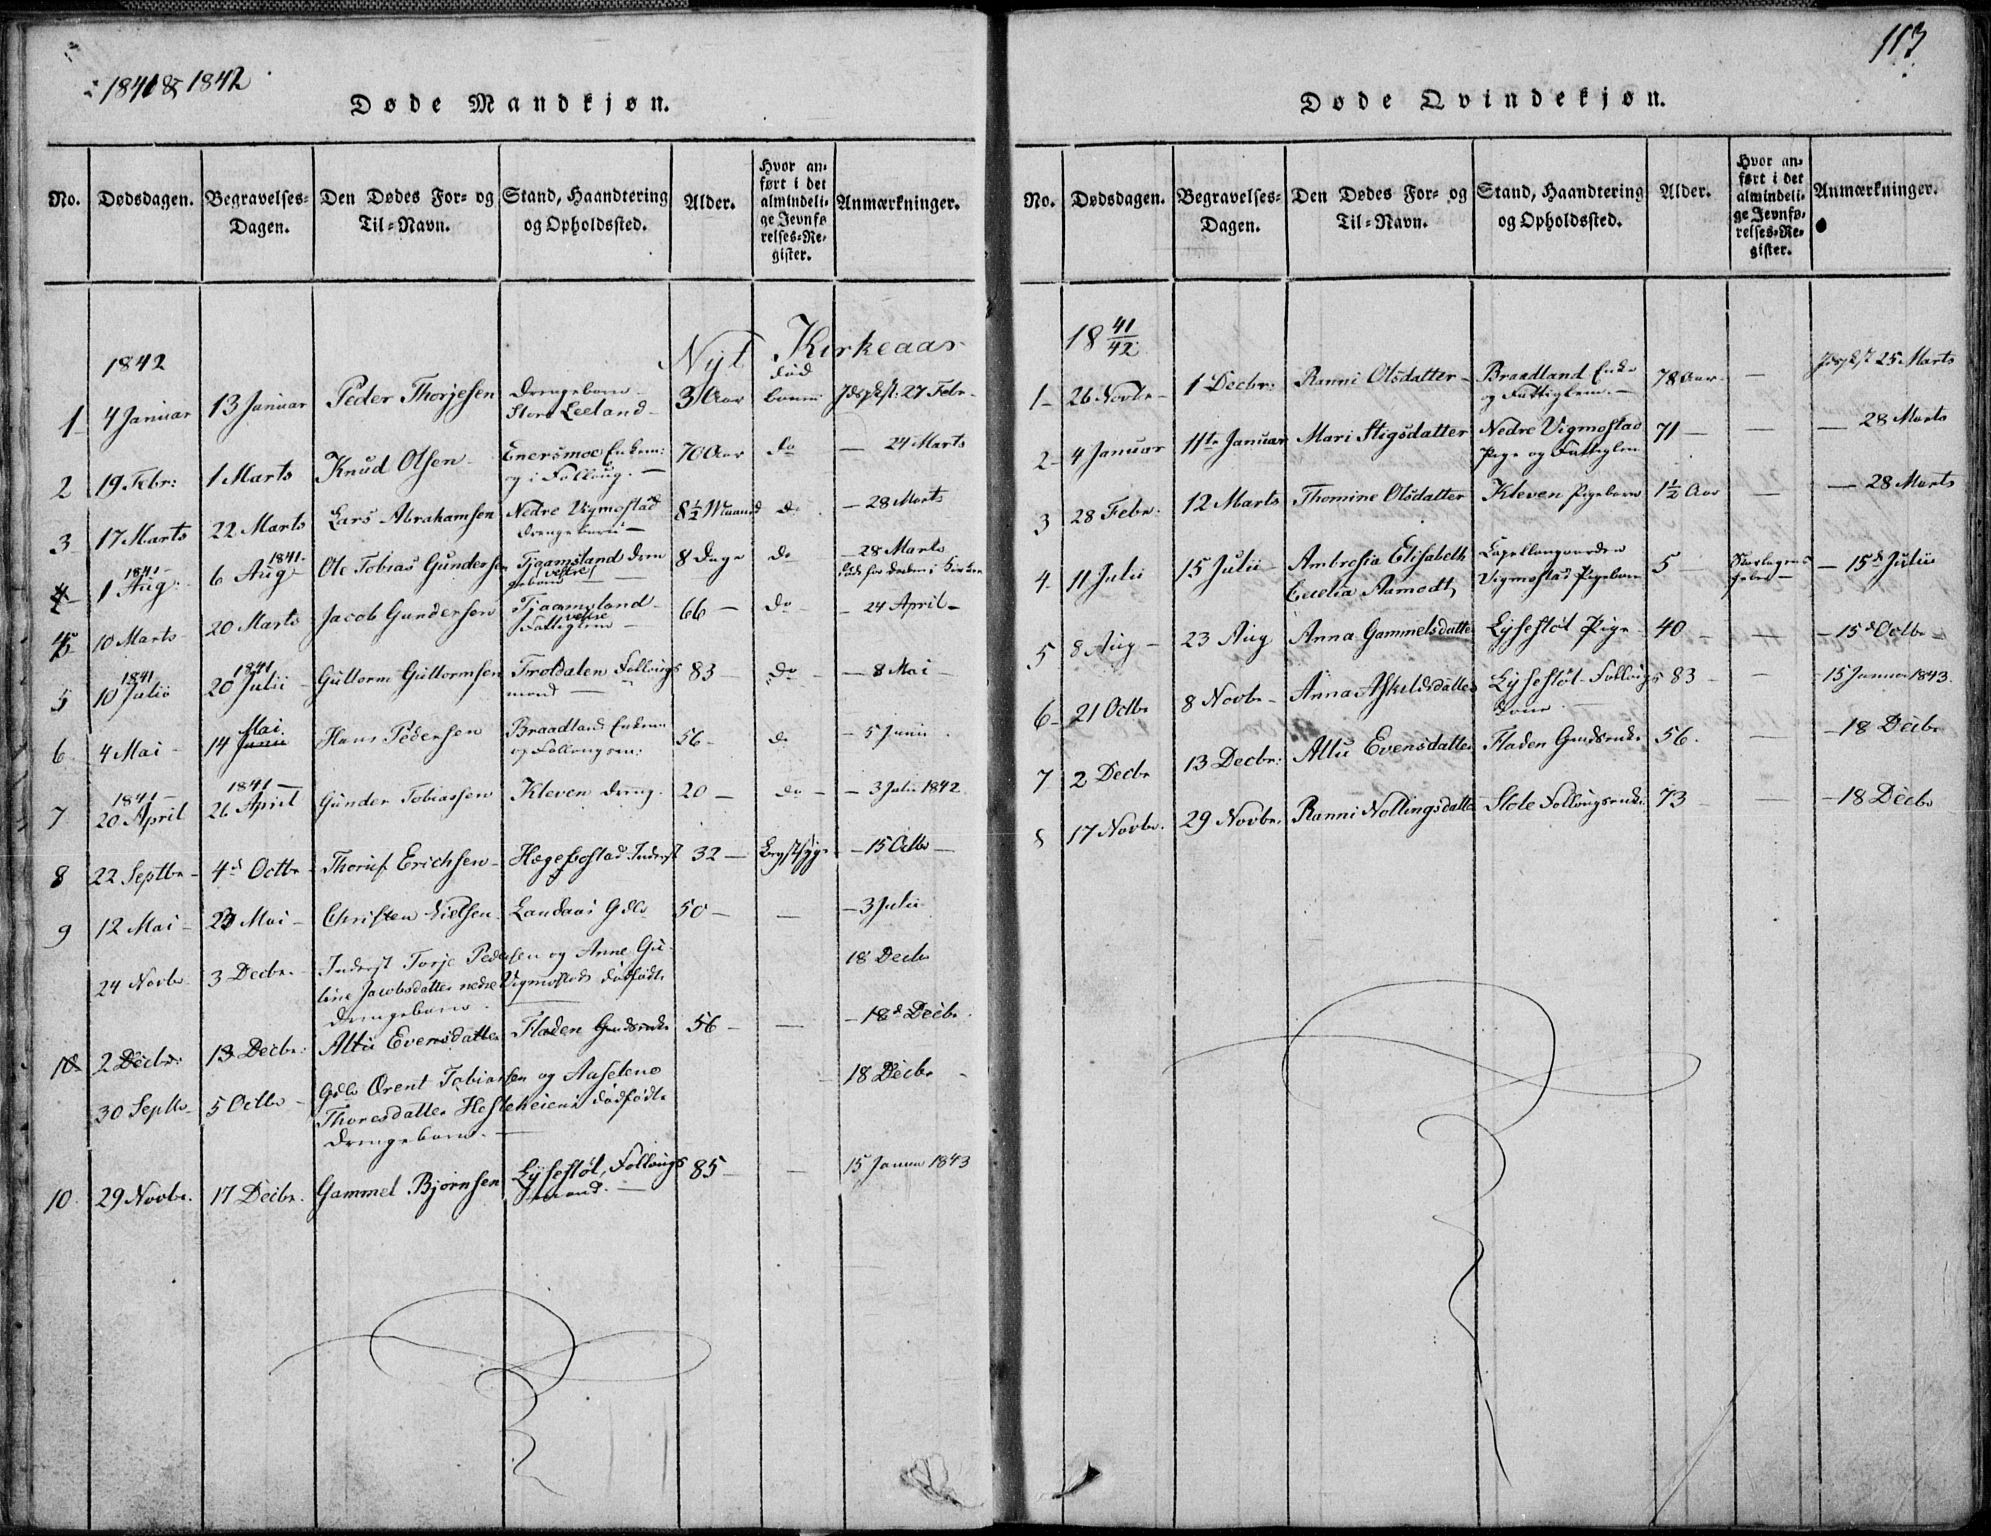 1841 & 1842
Døde Mandkjøn.
No. Dødsdagen. Begravelses-Dagen. Den Dødes For- og Til-Navn. Stand, Haandtering og Opholdssted. Alder. Hvor anført i det almindelige Jevnførelses-Register. Anmærkninger.
1842 Nyt Kirkeaar
1 4 Januar 13 Januar Peder Thorjesen Drengebarn Store Leeland 3 Aar død 27 Febr.
2 19 Febr: 1 Marts Knud Olsen Enersmoe Enkem: og i Follaug. 70 Aar do 24 Marts
3 17 Marts 22 Marts Lars Abrahamsen Nedre Vigmostad Drengebarn 8½ Maaned do 28 Marts
4 1841 1 Aug. 1841 6 Aug Ole Tobias Gundersen Tjaamsland vestre Drengebarn 8 Dage do 28 Marts
10 Marts 20 Marts Jacob Gundersen Tjaamsland vestre Fattiglem 66 do 24 April
5 1841 10 Julii 1841 20 Julii Guttorm Guttormsen Troldalen Follaugsmand 83 do 8 Mai
6 4 Mai 14 Mai Junii Hans Pedersen Braadland Enkem: og Follaugsm: 56 do 5 Junii
7 1841 20 April 1841 26 April Gunder Tobiassen Kleven Dreng 20 do 3 Julii 1842
8 22 Septbr 4d Octbr Thorius Erichsen Hægebostad Inderst 32 Brystsyge 15 Octbr
9 12 Mai 23 Mai Christen Nielsen Landaas Gdbr 50 3 Julii
24 Novbr 3 Decbr. Inderst Torje Pedersen og Anne Gu-
line Jacobsdatter nedre Vigmostads dødfødte
Drengebarn. 18 Decbr
10 2 Decbr: 13 Decbr: Altu Evensdatter Fladen Gmdsenke 56 18d Decbr.
30 Septbr 5 Octbr Gdbr Ørent Tobiassen og Aaselene
Thoresdatter Hesteheiens dødfødte
Drengebarn. 18 Decbr
10 29 Novbr. 17 Decbr. Gammel Bjørnsen Lysestøl, Follaugsmand. 85 15 Januar 1843
113
Døde Qvindekjøn.
No. Dødsdagen. Begravelses-Dagen. Den Dødes For- og Til-Navn. Stand, Haandtering og Opholdssted. Alder. Hvor anført i det almindelige Jevnførelses-Register. Anmærkninger.
18 41/42
1 26 Novbr 1 Decbr: Ranni Olsdatter Braadland Enke og Fattiglem. 78 Aar 25 Marts
2 4 Januar 11te Januar Mari Stigsdatter Nedre Vigmostad Pige og Fattiglem 71 28 Marts
3 28 Febr. 12 Marts Thomine Olsdatter Kleven Pigebarn 1½ Aar 28 Marts
4 11 Julii 15 Julii Ambrosia Elisabeth Cecelia Aamodt, Capellangaarden Vigmostad Pigebarn 5 15d Julii
5 8 Aug 23 Aug Anna Gammelsdatter Lysestøl Pige 40 15d Octbr
6 21 Octbr 8 Novbr Anna Askeldsdatter Lysestøl Follaugskone 83 15 Januar 1843
7 2 Decbr 13 Decbr: Altu Evensdatter Fladen Gmdsenke 56. 18 Decbr
8 17 Novbr. 29 Novbr. Ranni Nollingsdatter Stole Follaugsenke 73 18 Decbr